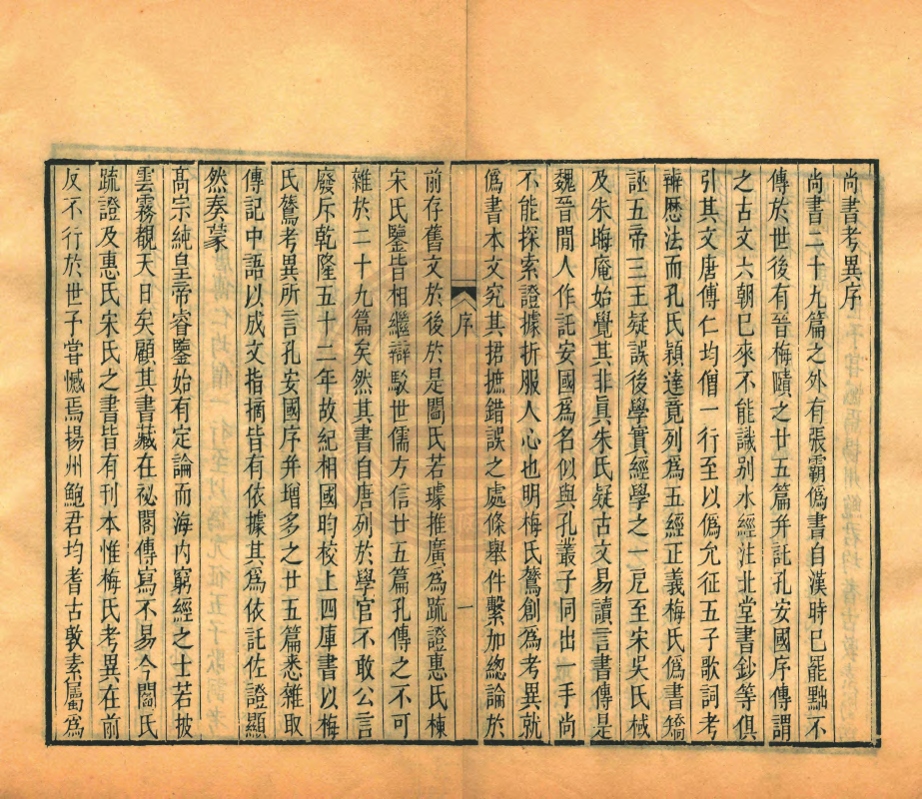 尚書考異序
尚書二十九篇之外有張霸僞書自漢時已罷黜不
傳於世後有晉梅賾之廿五篇并託孔安國序傳謂
之古文六朝已來不能識別水經注北堂書鈔等俱
引其文唐傅仁均僧一行至以僞允征五子歌詞考
辨厯法而孔氏穎達竟列爲五經正義梅氏僞書矯
誣五帝三王疑誤後學實經學之一戹至宋吳氏棫
及朱晦庵始覺其非眞朱氏疑古文易讀言書傳是
魏晉閒人作託安國爲名似與孔叢子同出一手尚
不能探索證據折服人心也明梅氏鷟創爲考異就
僞書本文究其捃摭錯誤之處條舉件繫加總論於
序
一
前存舊文於後於是閻氏若璩推廣爲疏證惠氏棟
宋氏鑒皆相繼辯駮世儒方信廿五篇孔傳之不可
雜於二十九篇矣然其書自唐列於學官不敢公言
廢斥乾隆五十二年故紀相國昀校上四庫書以梅
氏鷟考異所言孔安國序并增多之廿五篇悉雜取
傳記中語以成文指摘皆有依據其爲依託佐證顯
然奏蒙
高宗純皇帝睿鑒始有定論而海内窮經之士若披
雲霧覩天日矣顧其書藏在祕閣傳寫不易今閻氏
疏證及惠氏宋氏之書皆有刊本惟梅氏考異在前
反不行於世予嘗憾焉揚州鮑君均耆古敦素屬爲